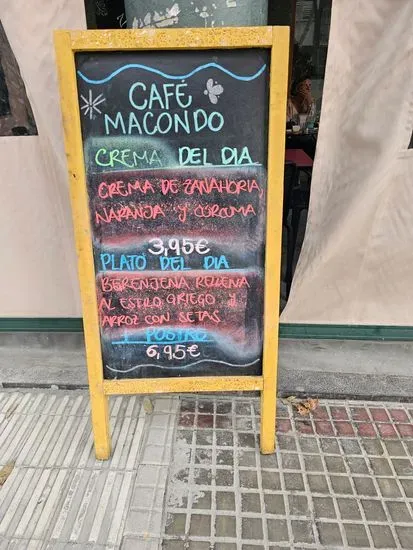 CAFÉ
MACONDO
CREMA DEL DIA
CREMA DE ZANAHORIA,
NARANJA Y CÚRCUMA
3,95€
PLATO DEL DIA
BERENJENA RELLENA
AL ESTILO GRIEGO Y
ARROZ CON SETAS
Y POSTRE
6,95€